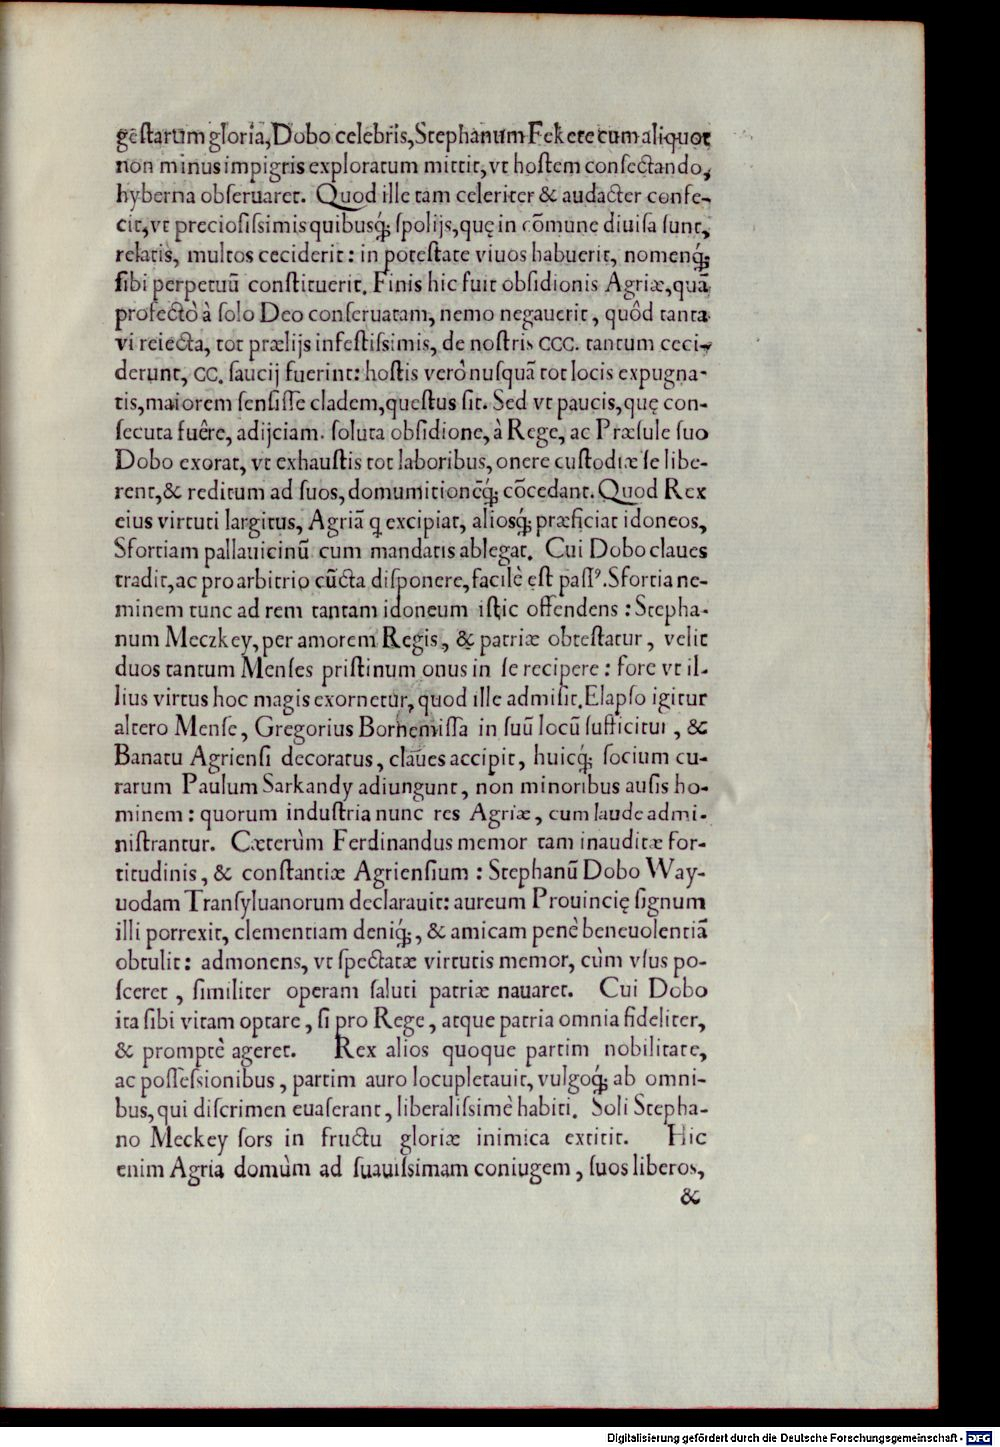 gestarum gloria, Dobo celebris, Stephanum Fekete cum aliquot
non minus impigris exploratum mittit, vt hostem consectando,
hyberna obseruaret. Quod ille tam celeriter & audacter confe-
cit, vt preciosissimis quibusq́; spolijs, quę in cōmune diuisa sunt,
relatis, multos ceciderit: in potestate viuos habuerit, nomenq́;
sibi perpetuū constituerit. Finis hic fuit obsidionis Agriæ, quā
profectò à solo Deo conseruatam, nemo negauerit, quôd tanta
vi reiecta, tot prælijs infestissimis, de nostris CCC. tantum ceci-
derunt, CC. saucij fuerint: hostis verò nusquā tot locis expugna-
tis, maiorem sensisse cladem, questus sit. Sed vt paucis, quę con-
secuta fuêre, adijciam. soluta obsidione, à Rege, ac Præsule suo
Dobo exorat, vt exhaustis tot laboribus, onere custodiæ se libe-
rent, & reditum ad suos, domumitionēq́; cōcedant. Quod Rex
eius virtuti largitus, Agriā q excipiat, aliosq́; præficiat idoneos,
Sfortiam pallauicinū cum mandatis ablegat. Cui Dobo claues
tradit, ac pro arbitrio cūcta disponere, facilè est pass⁹. Sfortia ne-
minem tunc ad rem tantam idoneum istic offendens: Stepha-
num Meczkey, per amorem Regis, & patriæ obtestatur, velit
duos tantum Menses pristinum onus in se recipere: fore vt il-
lius virtus hoc magis exornetur, quod ille admisit. Elapso igitur
altero Mense, Gregorius Bornemissa in suū locū sufficitur, &
Banatu Agriensi decoratus, claues accipit, huicq́; socium cu-
rarum Paulum Sarkandy adiungunt, non minoribus ausis ho-
minem: quorum industria nunc res Agriæ, cum laude admi-
nistrantur. Cæterùm Ferdinandus memor tam inauditæ for-
titudinis, & constantiæ Agriensium: Stephanū Dobo Way-
uodam Transyluanorum declarauit: aureum Prouincię signum
illi porrexit, clementiam deniq́;, & amicam penè beneuolentiā
obtulit: admonens, vt spectatæ virtutis memor, cùm vsus po-
sceret, similiter operam saluti patriæ nauaret. Cui Dobo
ita sibi vitam optare, si pro Rege, atque patria omnia fideliter,
& promptè ageret. Rex alios quoque partim nobilitate,
ac possessionibus, partim auro locupletauit, vulgoq́; ab omni-
bus, qui discrimen euaserant, liberalissimè habiti. Soli Stepha-
no Meckey sors in fructu gloriæ inimica extitit. Hic
enim Agria domùm ad suauissimam coniugem, suos liberos,
&
Digitalisierung gefördert durch die Deutsche Forschungsgemeinschaft - DFG